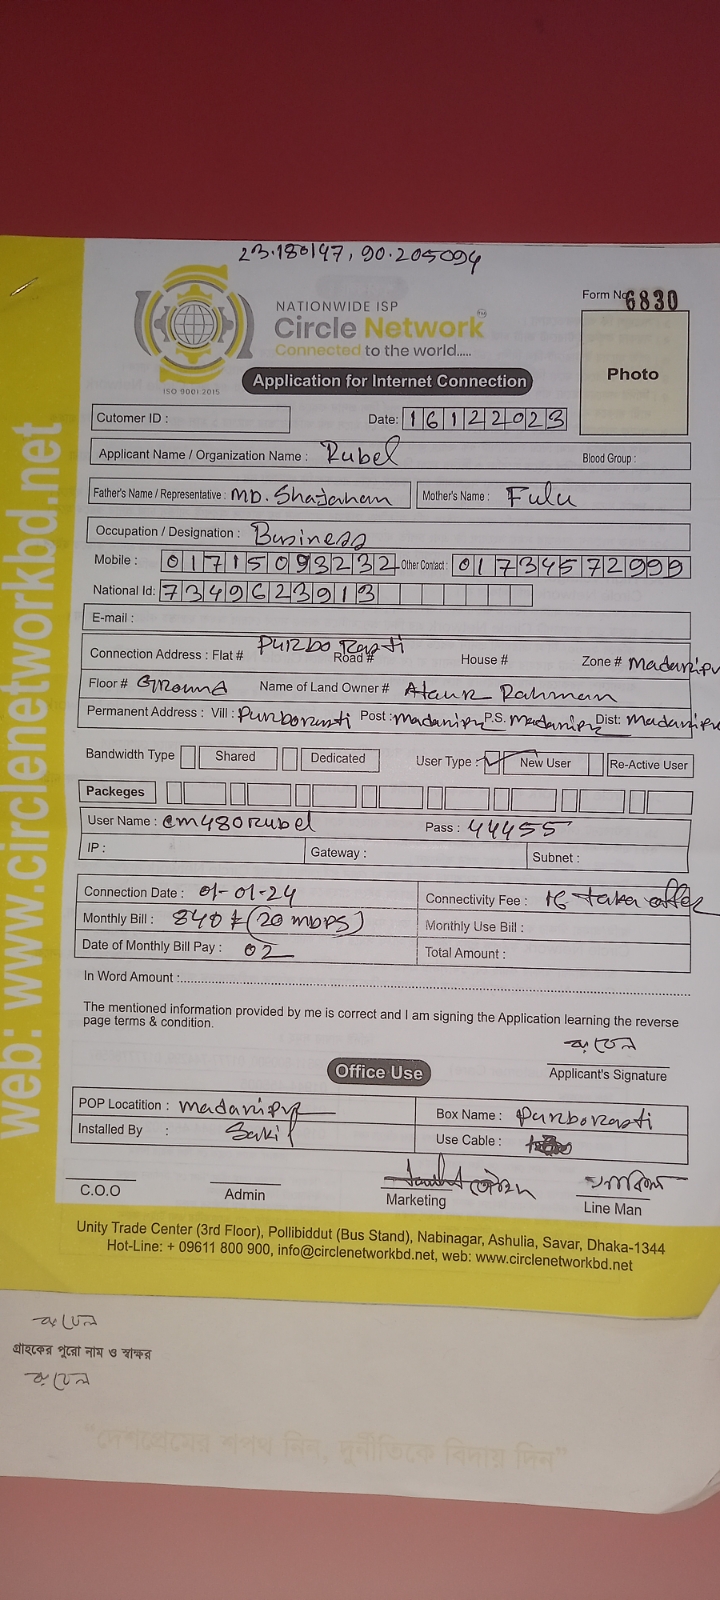 23.180147, 90.205094
Form No 6830
NATIONWIDE ISP
Circle Network
TM
Connected to the world.....
ISO 9001:2015
Photo
Application for Internet Connection
Cutomer ID :
Date: 16122023
Applicant Name / Organization Name : Rubel Blood Group :
Father's Name / Representative : MD. Shajahan Mother's Name : Fulu
Occupation / Designation : Business
Mobile : 01715093232 Other Contact : 01734572999
National Id: 7349623913
E-mail :
Connection Address : Flat # Purbo Rasti Road # House # Zone # Madaripur
Floor # Ground Name of Land Owner # Ataur Rahman
Permanent Address : Vill : Purborasti Post : Madaripur P.S. Madaripur Dist: Madaripur
Bandwidth Type Shared Dedicated User Type : New User Re-Active User
Packeges
User Name : cm480rubel Pass : 44455
IP : Gateway : Subnet :
Connection Date : 01-01-24 Connectivity Fee : 16 taka offer
Monthly Bill : 840 ৳ (20 mbps) Monthly Use Bill :
Date of Monthly Bill Pay : 02 Total Amount :
In Word Amount :
The mentioned information provided by me is correct and I am signing the Application learning the reverse
page terms & condition.
রুবেল
Applicant's Signature
Office Use
POP Locatition : Madaripur Box Name : Purborasti
Installed By : Sakif Use Cable :
C.O.O Admin Marketing Line Man
Unity Trade Center (3rd Floor), Pollibiddut (Bus Stand), Nabinagar, Ashulia, Savar, Dhaka-1344
Hot-Line: + 09611 800 900, info@circlenetworkbd.net, web: www.circlenetworkbd.net
web: www.circlenetworkbd.net
রুবেল
গ্রাহকের পুরো নাম ও স্বাক্ষর
রুবেল
"দেশপ্রেমের শপথ নিন, দুর্নীতিকে বিদায় দিন"